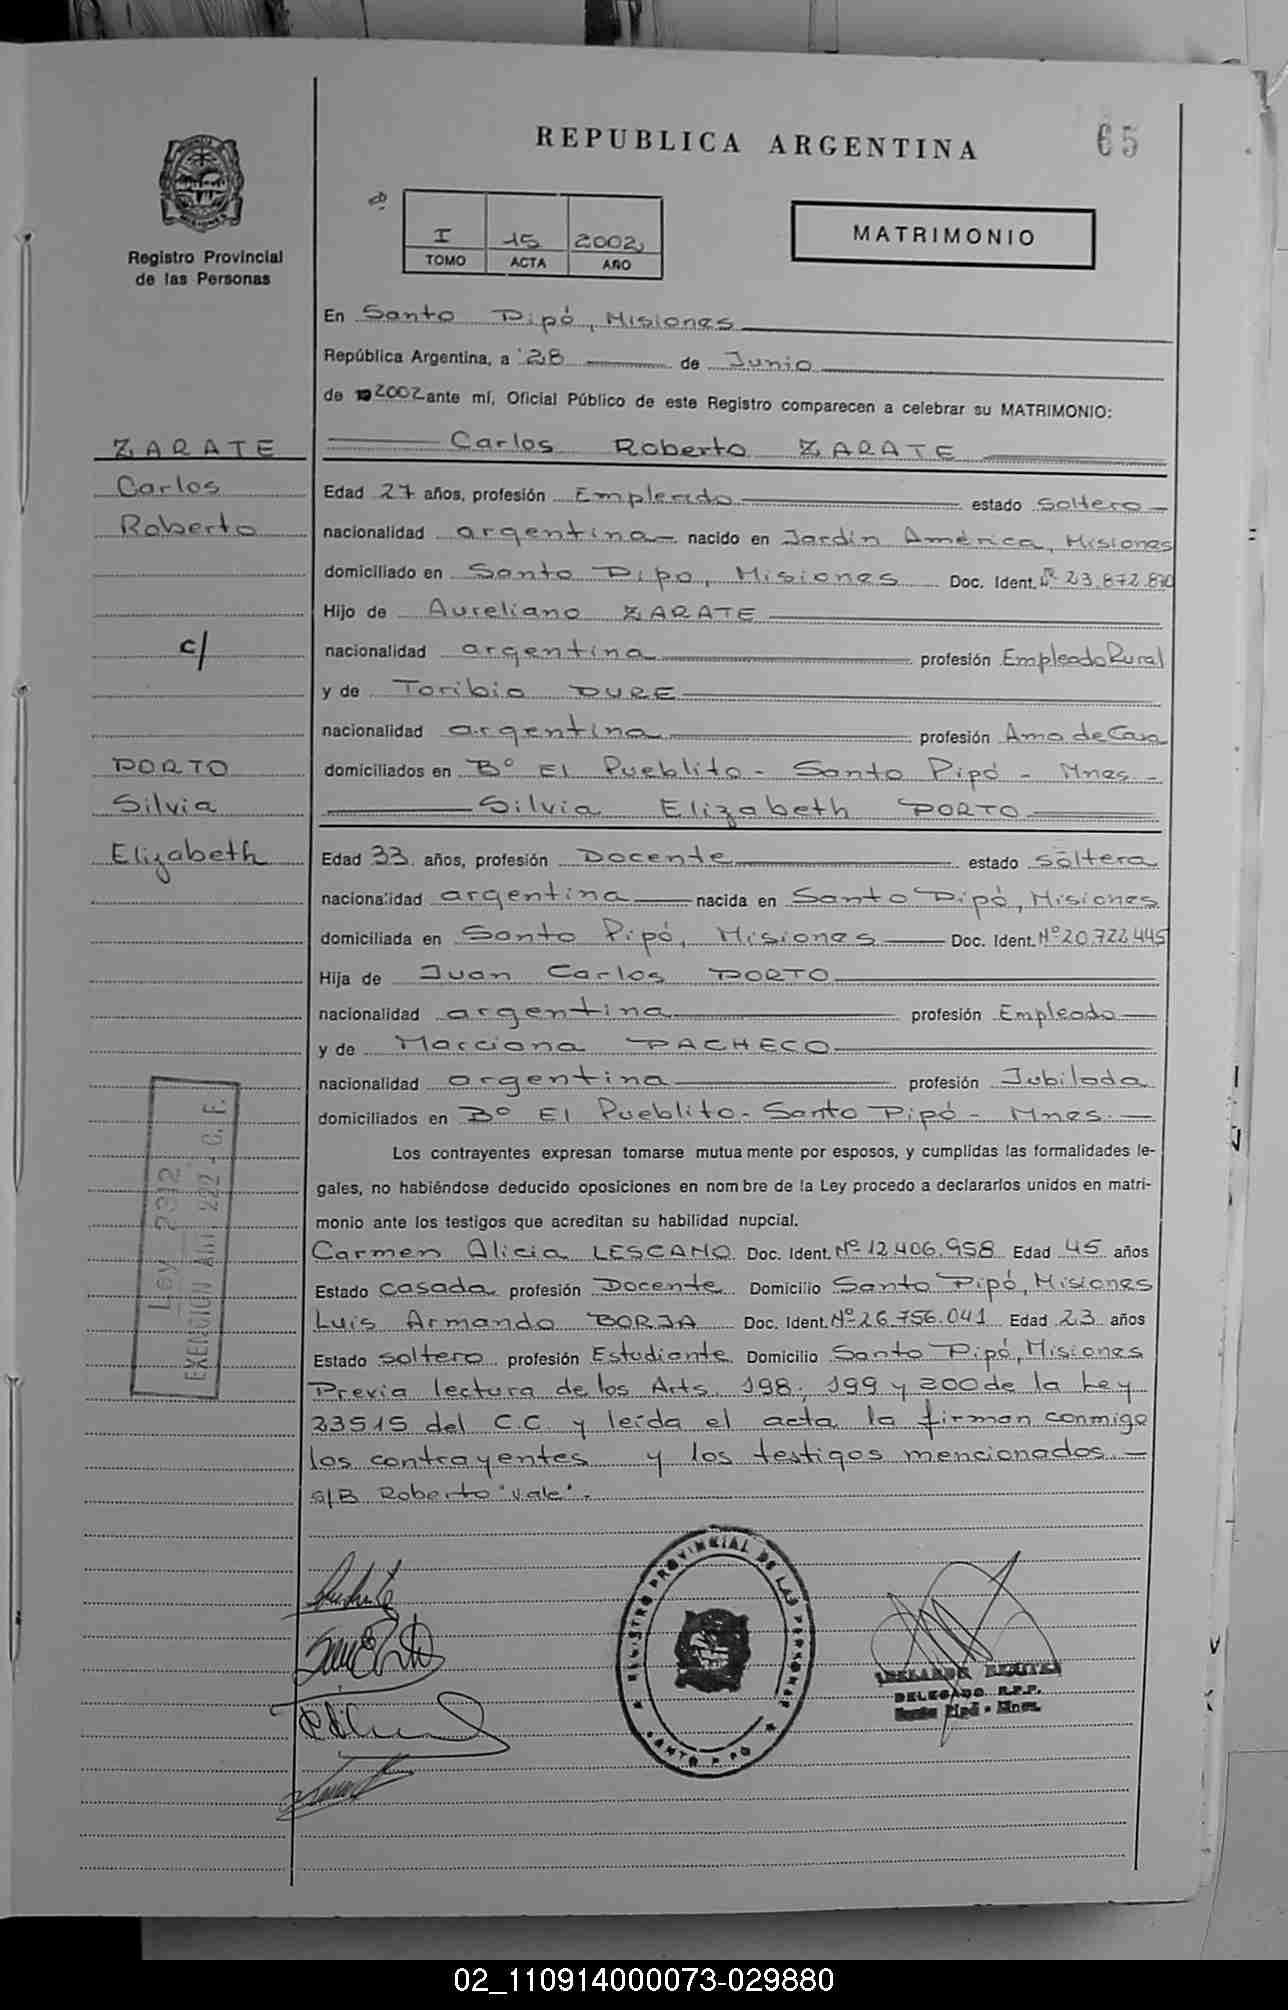 REPUBLICA ARGENTINA
65
Registro Provincial
de las Personas
I 15 2002
TOMO ACTA AÑO
MATRIMONIO
En Santo Pipó, Misiones
República Argentina, a 28 de Junio
de 2002 ante mí, Oficial Público de este Registro comparecen a celebrar su MATRIMONIO:
ZARATE
Carlos
Roberto
c/
PORTO
Silvia
Elizabeth
Carlos Roberto ZARATE
Edad 27 años, profesión Empleado estado soltero
nacionalidad argentina nacido en Jardín América, Misiones
domiciliado en Santo Pipo, Misiones Doc. Ident. Nº 23.872.870
Hijo de Aureliano ZARATE
nacionalidad argentina profesión Empleado Rural
y de Toribia DURE
nacionalidad argentina profesión Ama de Casa
domiciliados en Bº El Pueblito - Santo Pipó - Mnes -
Silvia Elizabeth PORTO
Edad 33 años, profesión Docente estado soltera
nacionalidad argentina nacida en Santo Pipó, Misiones
domiciliada en Santo Pipó, Misiones Doc. Ident. Nº 20.722.445
Hija de Juan Carlos PORTO
nacionalidad argentina profesión Empleado
y de Marciana PACHECO
nacionalidad argentina profesión Jubilada
domiciliados en Bº El Pueblito - Santo Pipó - Mnes.
Los contrayentes expresan tomarse mutuamente por esposos, y cumplidas las formalidades le-
gales, no habiéndose deducido oposiciones en nombre de la Ley procedo a declararlos unidos en matri-
monio ante los testigos que acreditan su habilidad nupcial.
Carmen Alicia LESCANO Doc. Ident. Nº 12.406.958 Edad 45 años
Estado casada profesión Docente Domicilio Santo Pipó, Misiones
Luis Armando BORJA Doc. Ident. Nº 26.756.041 Edad 23 años
Estado soltero profesión Estudiante Domicilio Santo Pipó, Misiones
Previa lectura de los Arts. 198, 199 y 200 de la Ley
23515 del C.C. y leída el acta la firman conmigo
los contrayentes y los testigos mencionados.-
s/B Roberto "vale".-
Ley 2312
EXENCION Art. 222 - C. F.
REGISTRO PROVINCIAL DE LAS PERSONAS
SANTO PIPÓ
DELEGADO R.P.P.
Santo Pipó - Mnes.
02_110914000073-029880